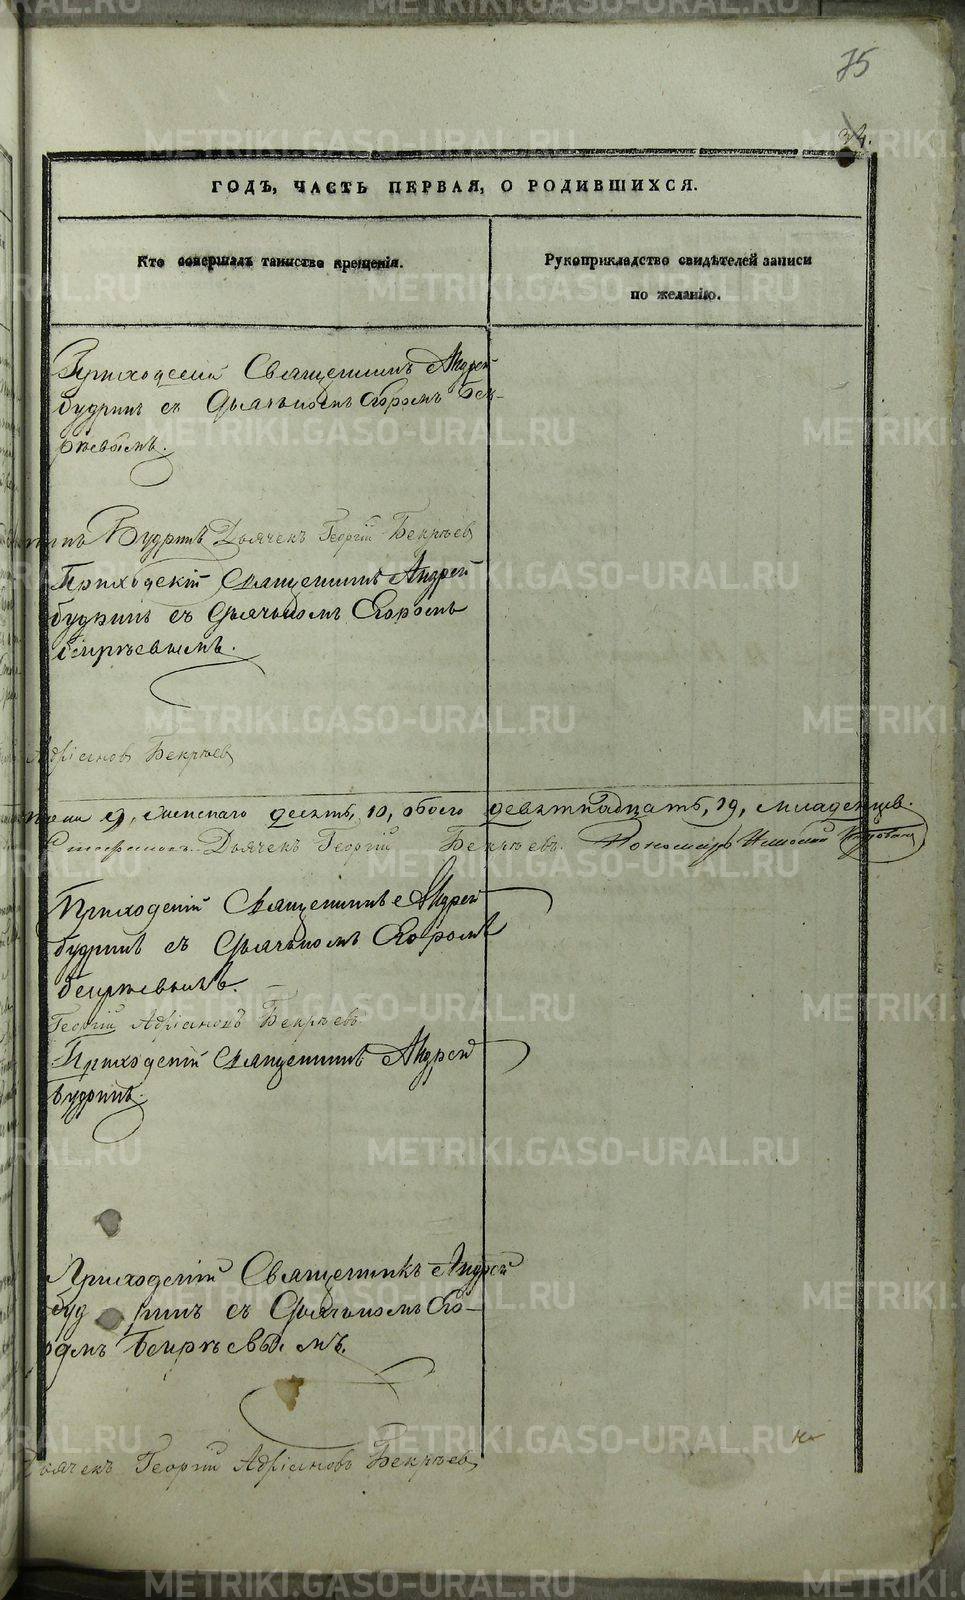 75
34.
ГОДЪ, ЧАСТЬ ПЕРВАЯ, О РОДИВШИХСЯ.
Кто совершалъ таинство крещенія.
Рукоприкладство свидѣтелей записи
по желанію.
Приходскій Священникъ Андрей
Будринъ съ Дьячькомъ Егоромъ Бек-
рѣевымъ.
Будринъ Дьячекъ Георгій Бекрѣев
Приходскій Священникъ Андрей
Будринъ съ Дьячькомъ Егоромъ
Бекрѣевымъ.
Адріановъ Бекрѣевъ
9, женскаго десять, 10, обоего девятнадцать, 19, младенцев.
Стефановъ Дьячекъ Георгій Бекрѣевъ. Пономарь
Приходскій Священникъ Андрей
Будринъ съ Дьячькомъ Егоромъ
Бекрѣевымъ.
Георгій Адріановъ Бекрѣевъ
Приходскій Священникъ Андрей
Будринъ.
Приходскій Священникъ Андрей
Будринъ съ Дьячькомъ Его-
ромъ Бекрѣевымъ.
Дьячекъ Георгій Адріановъ Бекрѣевъ
METRIKI.GASO-URAL.RU